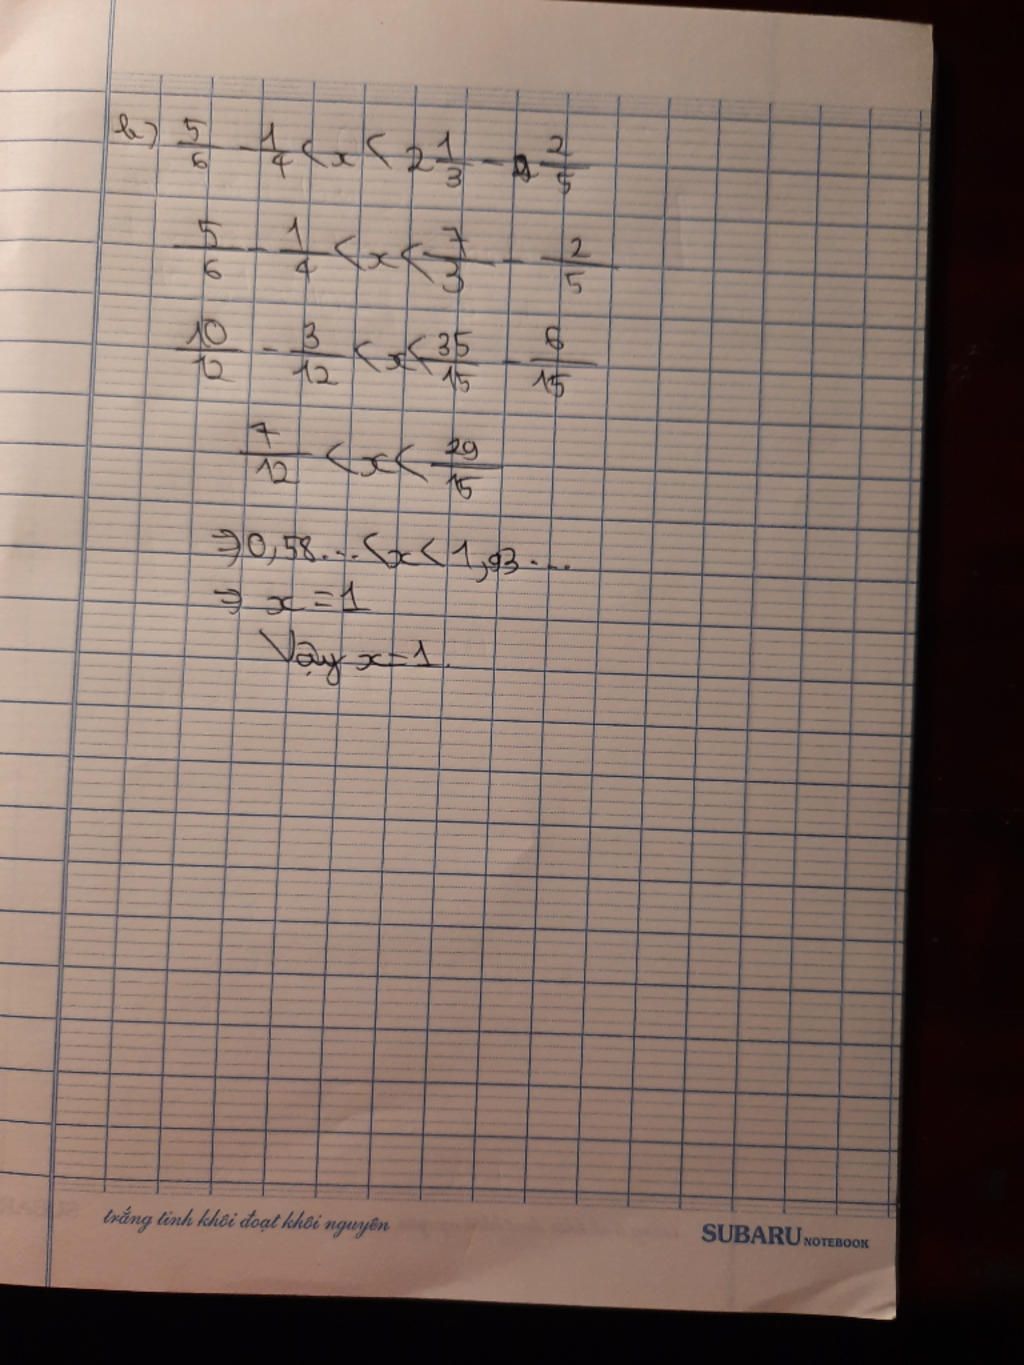 b) 5/6 - 1/4 < x < 2 1/3 - 2/5
5/6 - 1/4 < x < 7/3 - 2/5
10/12 - 3/12 < x < 35/15 - 6/15
7/12 < x < 29/15
⇒ 0,58... < x < 1,93...
⇒ x = 1
Vậy x = 1.
trắng tinh khôi đoạt khôi nguyên
SUBARU NOTEBOOK